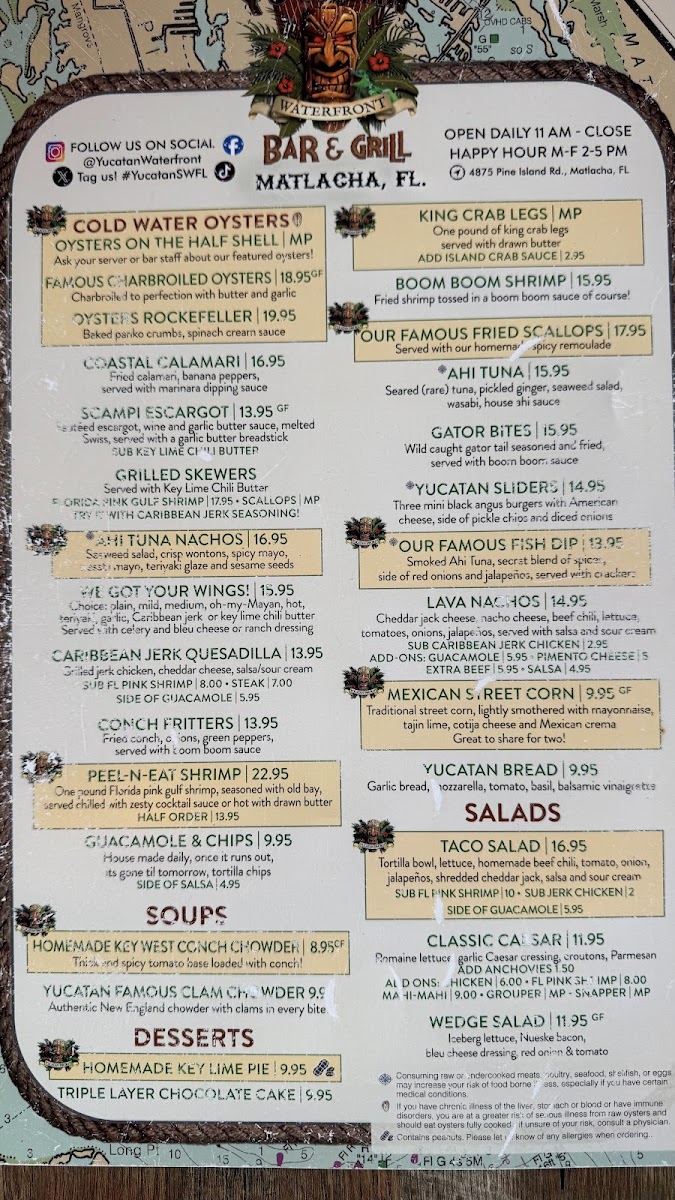 WATERFRONT
BAR & GRILL
MATLACHA, FL.
FOLLOW US ON SOCIAL
@YucatanWaterfront
Tag us! #YucatanSWFL
OPEN DAILY 11 AM - CLOSE
HAPPY HOUR M-F 2-5 PM
4875 Pine Island Rd., Matlacha, FL
COLD WATER OYSTERS
OYSTERS ON THE HALF SHELL | MP
Ask your server or bar staff about our featured oysters!
FAMOUS CHARBROILED OYSTERS | 18.95 GF
Charbroiled to perfection with butter and garlic
OYSTERS ROCKEFELLER | 19.95
Baked panko crumbs, spinach cream sauce
COASTAL CALAMARI | 16.95
Fried calamari, banana peppers,
served with marinara dipping sauce
SCAMPI ESCARGOT | 13.95 GF
Sautéed escargot, wine and garlic butter sauce, melted
Swiss, served with a garlic butter breadstick
SUB KEY LIME CHILI BUTTER
GRILLED SKEWERS
Served with Key Lime Chili Butter
FLORIDA PINK GULF SHRIMP | 17.95 • SCALLOPS | MP
TRY IT WITH CARIBBEAN JERK SEASONING!
*AHI TUNA NACHOS | 16.95
Seaweed salad, crisp wontons, spicy mayo,
mayo, teriyaki glaze and sesame seeds
WE GOT YOUR WINGS! | 15.95
Choice: plain, mild, medium, oh-my-Mayan, hot,
teriyaki, garlic, Caribbean jerk or key lime chili butter
Served with celery and bleu cheese or ranch dressing
CARIBBEAN JERK QUESADILLA | 13.95
Grilled jerk chicken, cheddar cheese, salsa/sour cream
SUB FL PINK SHRIMP | 8.00 • STEAK | 7.00
SIDE OF GUACAMOLE | 5.95
CONCH FRITTERS | 13.95
Fried conch, onions, green peppers,
served with boom boom sauce
PEEL-N-EAT SHRIMP | 22.95
One pound Florida pink gulf shrimp, seasoned with old bay,
served chilled with zesty cocktail sauce or hot with drawn butter
HALF ORDER | 13.95
GUACAMOLE & CHIPS | 9.95
House made daily, once it runs out,
its gone til tomorrow, tortilla chips
SIDE OF SALSA | 4.95
SOUPS
HOMEMADE KEY WEST CONCH CHOWDER | 8.95 GF
Thick and spicy tomato base loaded with conch!
YUCATAN FAMOUS CLAM CHOWDER 9.9
Authentic New England chowder with clams in every bite
DESSERTS
HOMEMADE KEY LIME PIE | 9.95
TRIPLE LAYER CHOCOLATE CAKE | 9.95
KING CRAB LEGS | MP
One pound of king crab legs
served with drawn butter
ADD ISLAND CRAB SAUCE | 2.95
BOOM BOOM SHRIMP | 15.95
Fried shrimp tossed in a boom boom sauce of course!
OUR FAMOUS FRIED SCALLOPS | 17.95
Served with our homemade spicy remoulade
*AHI TUNA | 15.95
Seared (rare) tuna, pickled ginger, seaweed salad,
wasabi, house ahi sauce
GATOR BITES | 15.95
Wild caught gator tail seasoned and fried,
served with boom boom sauce
*YUCATAN SLIDERS | 14.95
Three mini black angus burgers with American
cheese, side of pickle chips and diced onions
*OUR FAMOUS FISH DIP | 13.95
Smoked Ahi Tuna, secret blend of spices,
side of red onions and jalapeños, served with crackers
LAVA NACHOS | 14.95
Cheddar jack cheese, nacho cheese, beef chili, lettuce,
tomatoes, onions, jalapeños, served with salsa and sour cream
SUB CARIBBEAN JERK CHICKEN | 2.95
ADD-ONS: GUACAMOLE | 5.95 • PIMENTO CHEESE | 5
EXTRA BEEF | 5.95 • SALSA | 4.95
MEXICAN STREET CORN | 9.95 GF
Traditional street corn, lightly smothered with mayonnaise,
tajin lime, cotija cheese and Mexican crema
Great to share for two!
YUCATAN BREAD | 9.95
Garlic bread, mozzarella, tomato, basil, balsamic vinaigrette
SALADS
TACO SALAD | 16.95
Tortilla bowl, lettuce, homemade beef chili, tomato, onion,
jalapeños, shredded cheddar jack, salsa and sour cream
SUB FL PINK SHRIMP | 10 • SUB JERK CHICKEN | 2
SIDE OF GUACAMOLE | 5.95
CLASSIC CAESAR | 11.95
Romaine lettuce, garlic Caesar dressing, croutons, Parmesan
ADD ANCHOVIES 1.50
ADD ONS: CHICKEN | 6.00 • FL PINK SHRIMP | 8.00
MAHI-MAHI | 9.00 • GROUPER | MP • SNAPPER | MP
WEDGE SALAD | 11.95 GF
Iceberg lettuce, Nueske bacon,
bleu cheese dressing, red onion & tomato
Consuming raw or undercooked meats, poultry, seafood, shellfish, or eggs
may increase your risk of food borne illness, especially if you have certain
medical conditions.
If you have chronic illness of the liver, stomach or blood or have immune
disorders, you are at a greater risk of serious illness from raw oysters and
should eat oysters fully cooked. If unsure of your risk, consult a physician.
Contains peanuts. Please let us know of any allergies when ordering..
Long Pt